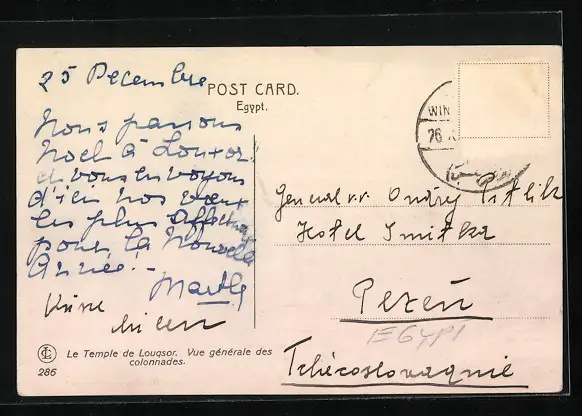 25 Decembre
POST CARD.
Egypt.
Nous passons
Noel à Louxor
et vous envoyons
d'ici nos vœux
les plus affectueux
pour la Nouvelle
Année! -
WIN
26
General v.v. Ondrej
Hotel Smitka
EGYPT
Tchécoslovaquie
Le Temple de Louqsor. Vue générale des
colonnades.
286